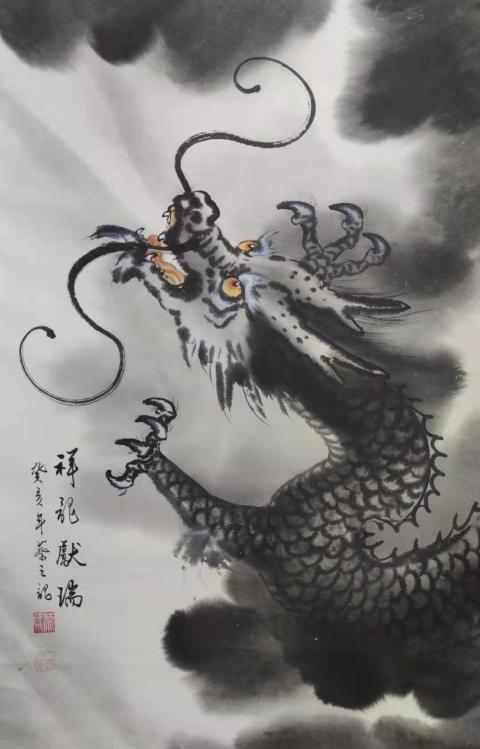 祥龍獻瑞
癸亥年蔡之龍